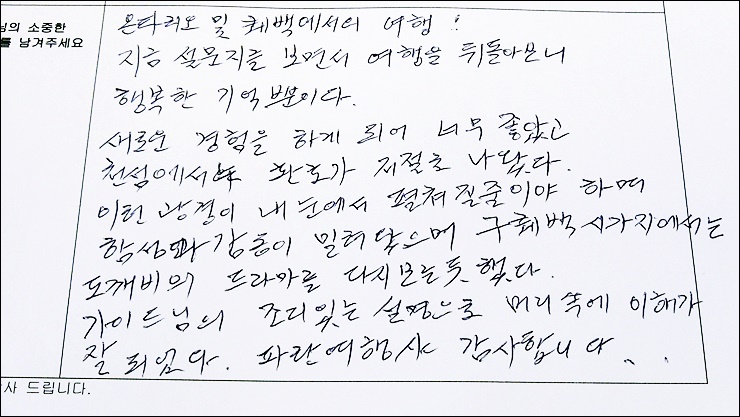 님의 소중한
를 남겨주세요
온타리오 및 퀘백에서의 여행!
지금 설문지를 보면서 여행을 뒤돌아보니
행복한 기억뿐이다.
새로운 경험을 하게 되어 너무 좋았고
천섬에서 환호가 저절로 나왔다.
이런 광경이 내 눈에서 펼쳐질줄이야 하며
함성과 감동이 밀려 왔으며 구퀘백 시가지에서는
도깨비의 드라마를 다시보는듯 했다.
가이드님의 조리있는 설명으로 머리속에 이해가
잘 되었다. 파란여행사 감사합니다..
사 드립니다.